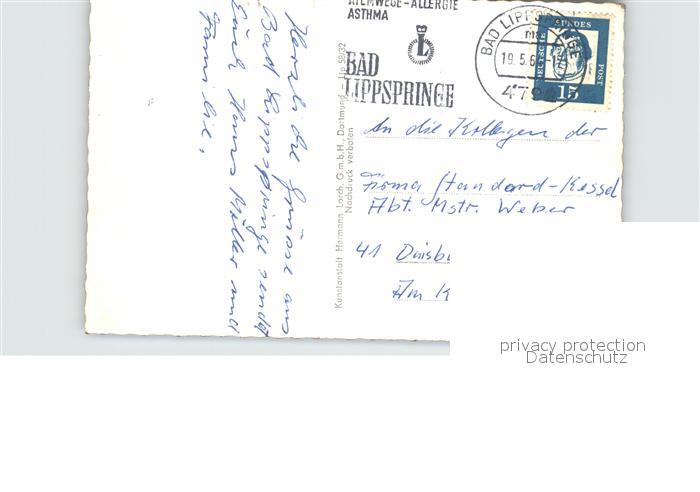 Herzliche Grüsse aus
Bad Lippspringe sendet
Euch Hans Müller und
Familie.
ATEMWEGE-ALLERGIE
ASTHMA
L
BAD
LIPPSPRINGE
BAD LIPPSPRINGE
19.5.6
DEUTSCHE BUNDESPOST
15
Kunstanstalt Hermann Lorch, G.m.b.H., Dortmund Lip 58/32
Nachdruck verboten
An die Kollegen der
Firma Standard-Kessel
Abt. Mstr. Weber
41 Duisb
Am K
privacy protection
Datenschutz